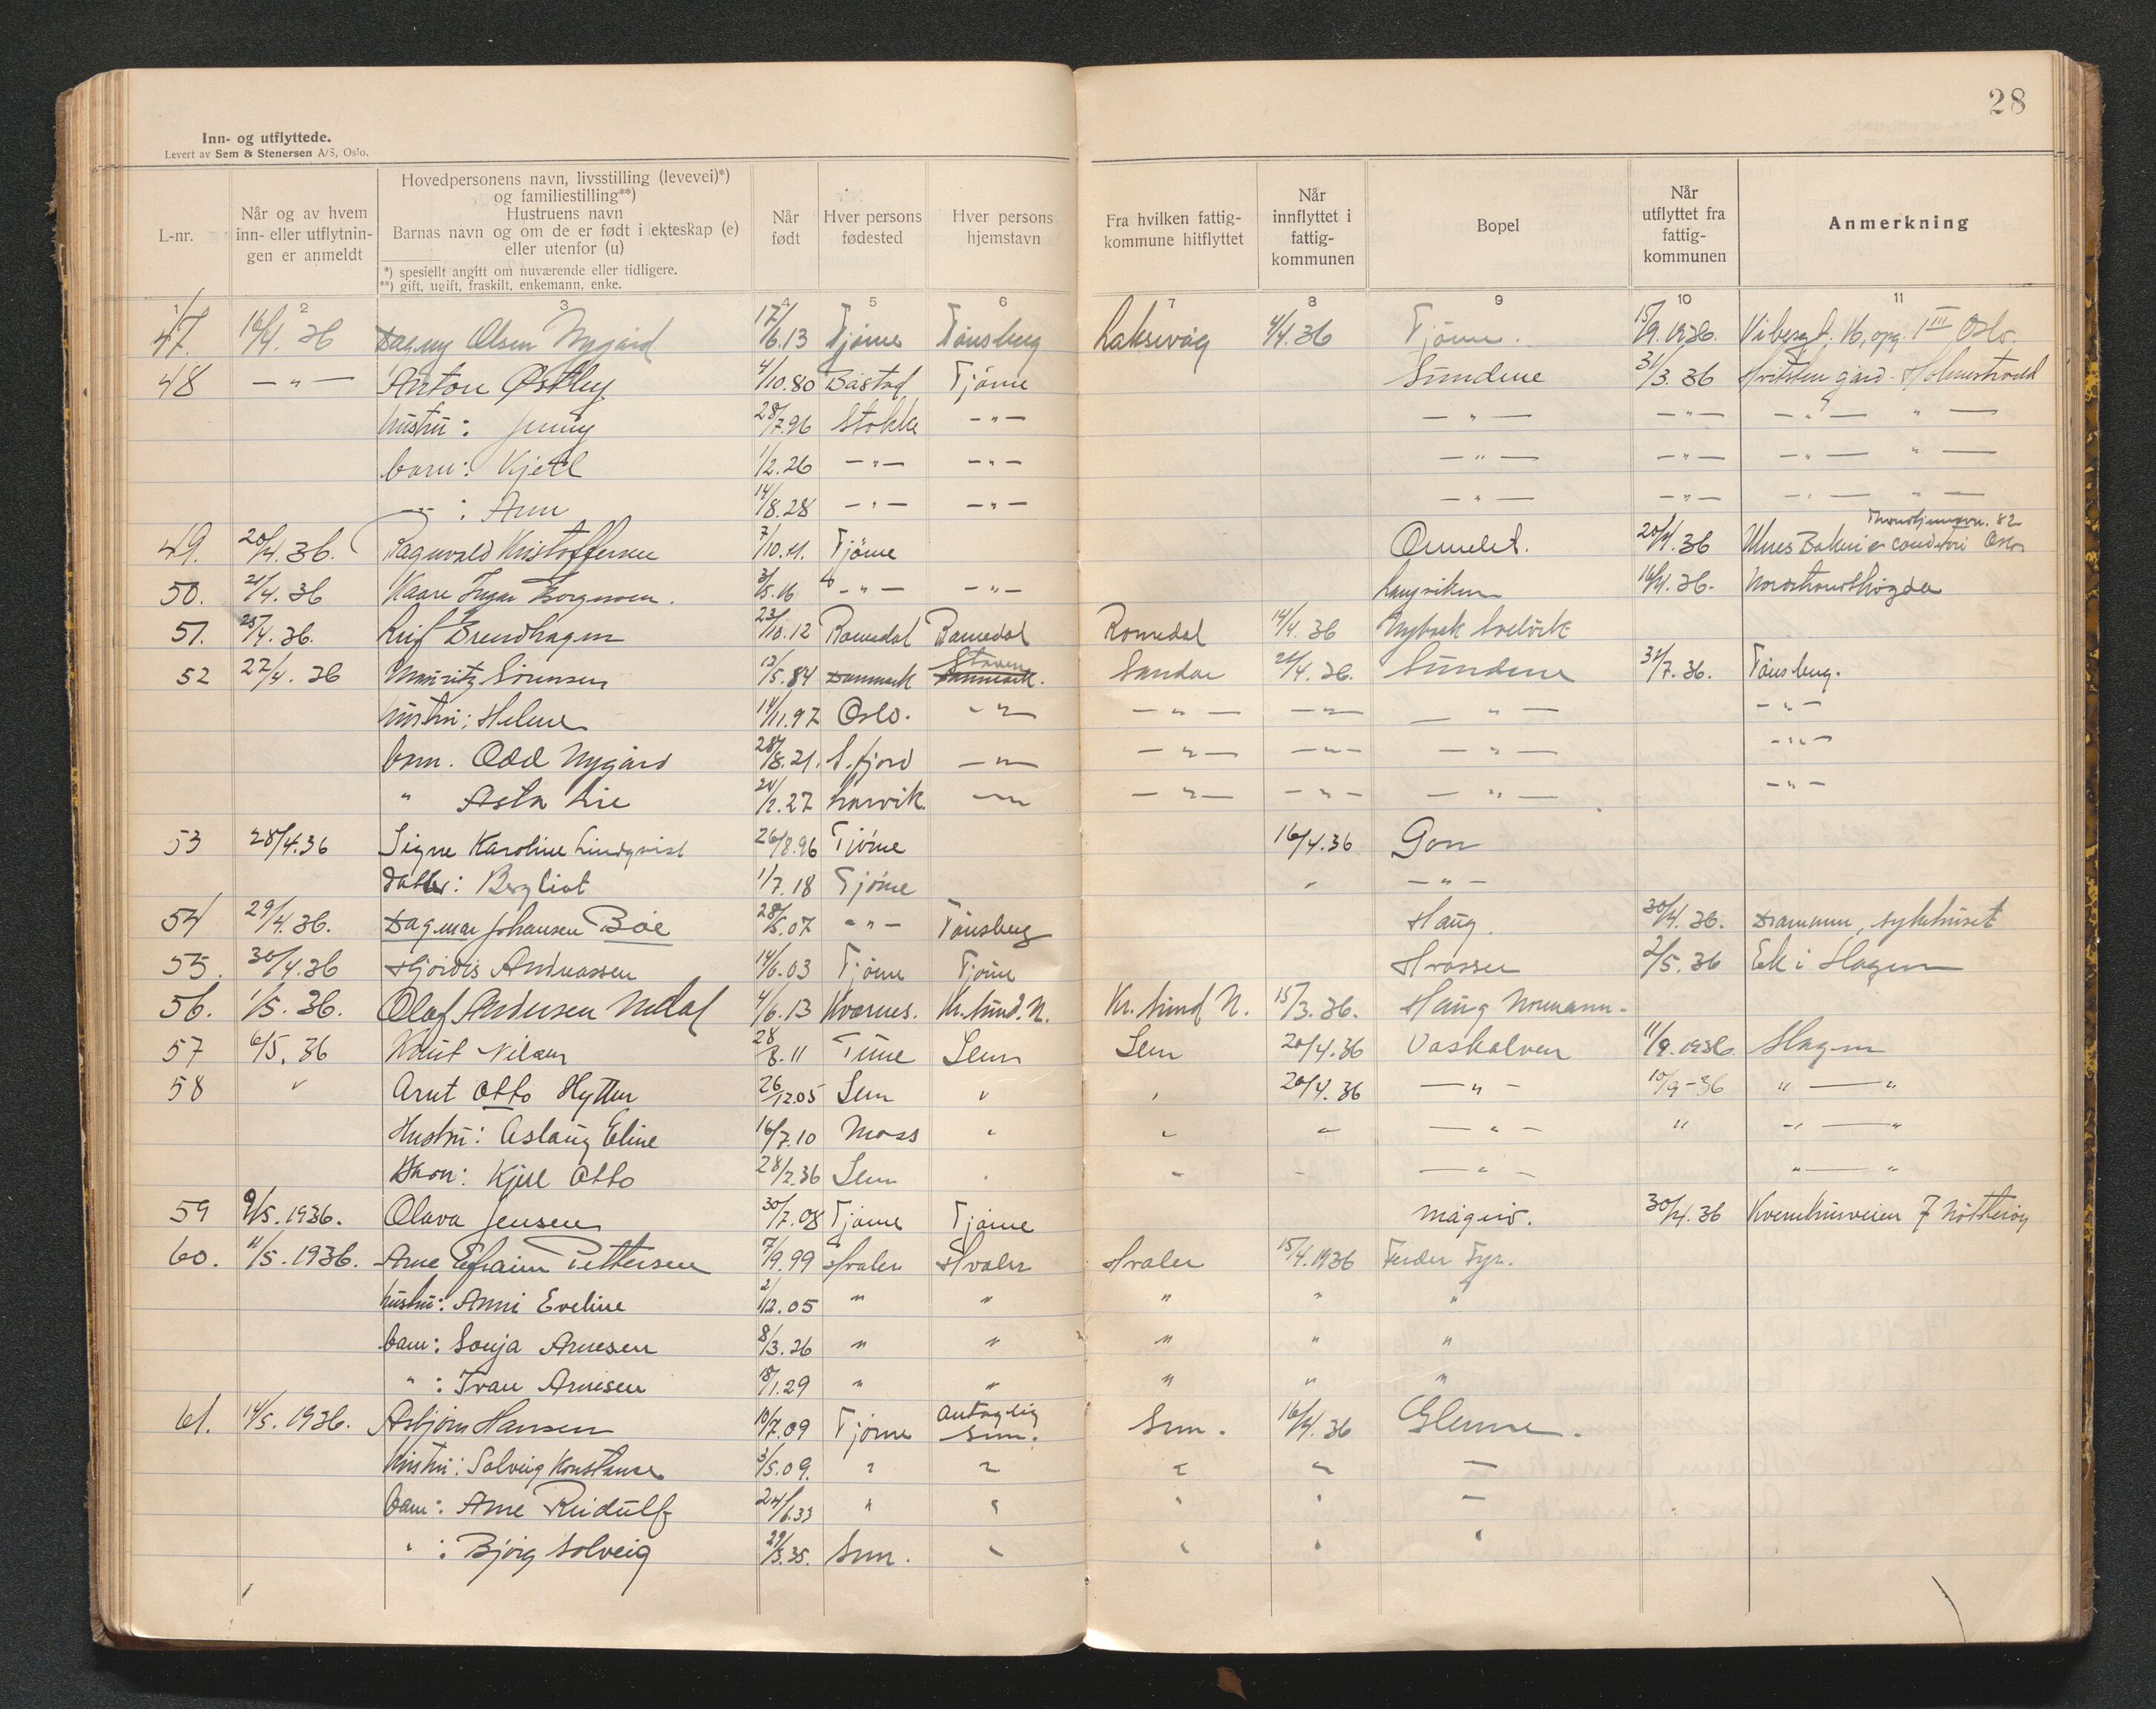 28
Inn- og utflyttede.
Levert av Sem & Stenersen A/S, Oslo.
L-nr.
Når og av hvem inn- eller utflytningen er anmeldt
Hovedpersonens navn, livsstilling (levevei)*)
og familiestilling**)
Hustruens navn
Barnas navn og om de er født i ekteskap (e)
eller utenfor (u)
*) spesiellt angitt om nuværende eller tidligere.
**) gift, ugift, fraskilt, enkemann, enke.
Når født
Hver persons fødested
Hver persons hjemstavn
Fra hvilken fattigkommune hitflyttet
Når innflyttet i fattigkommunen
Bopel
Når utflyttet fra fattigkommunen
Anmerkning
1 2 3 4 5 6 7 8 9 10 11
47. 16/4. 36 Dagny Olsen Nygård 17/6.13 Tjöme Tönsberg Laksevåg 4/4.36 Tjöme. 15/9.1936. Vibesgt. 16, opg. 1 III Oslo.
48 — " — Anton Østby 4/10.80 Båstad Tjöme Sundene 31/3.36 gård. Holmestrand
hustru: Jenny 28/7.96 Stokke — " — — " — — " — — " — " —
barn: Kjell 1/2.26 — " — — " — — " — — " — — " — " —
— " — : Arne 14/8.28 — " — — " — — " — — " — — " — " —
49. 20/4.36. Ragnvald Kristoffersen 7/10.11. Tjöme Ormelet. 20/4.36 Trondhjemsvn. 82 Bakeri & conditori Oslo
50. 21/4.36 Kaare Ingar Borgersen. 3/5.16 — " — — " — Langviken 16/4.36. Nordstrandshögda
51. 25/4.36. Leif Grundhagen 23/10.12 Romedal Romedal Romedal 14/4.36 Nybæk Solvik
52 22/4.36 Mauritz Sörensen 13/5.84 Danmark Danmark. Sandar 21/4.36. Sundene 31/7.36. Tönsberg.
hustru: Helene 14/11.97 Oslo. — " — — " — — " — — " — — " —
barn. Odd Nygård 28/8.21. S. fjord — " — — " — — " — — " — — " —
" Asta Lie 24/2.27 Larvik. — " — — " — — " — — " — — " —
53 28/4.36 Signe Karoline Lindqvist 26/8.96 Tjöme 16/4.36 Gon
datter: Bergliot 1/7.18 Tjöme " — " —
54 29/4.36. Dagmar Johansen Bøe 28/5.07 — " — Tönsberg Haug. 30/4.36. Drammen, sykehuset
55. 30/4.36 Hjördis Andreassen 14/6.03 Tjöme Tjöme Hvasser 2/5.36 Ek i Slagen
56. 1/5.36. Olaf Andersen Nedal 4/6.13 Kvernes. Kr. Sund. N. Kr. Sund N. 15/3.36. Haug Normann.
57 6/5.36 Knut Nilsen 28/8.11 Tune Sem Sem 20/4.36 Vaskalven 11/9.1936. Slagen
58 " Arnt Otto Hytten 26/12.05 Sem " " 20/4.36 — " — 10/9-36 " — "
Hustru: Aslaug Eline 16/7.10 Moss " " " — " — " " — "
Barn: Kjell Otto 28/2.36 Sem " " " — " — " — "
59 9/5.1936. Olava Jensen 30/7.08 Tjöme Tjöme Mågerö. 30/4.36 Kvernhusveien 7 Nötteröy
60. 11/5.1936. Arne Efraim Pettersen 7/9.99 Hvaler Hvaler Hvaler 15/4.1936 Færder Fyr.
hustru: Anni Eveline 2/12.05 " " " " "
barn: Sonja Arnesen 8/3.26 " " " " "
" : Ivan Arnesen 18/1.29 " " " " "
61. 14/5.1936. Asbjörn Hansen 10/7.09 Tjöme Antaglig Sem. Sem. 16/4.36 Glenne.
Hustru: Solveig Konstanse 3/5.09. " " " " —
barn: Arne Reidulf 24/6.33 " " " " —
" : Bjørg Solveig 29/3.35. Sem. " " " "